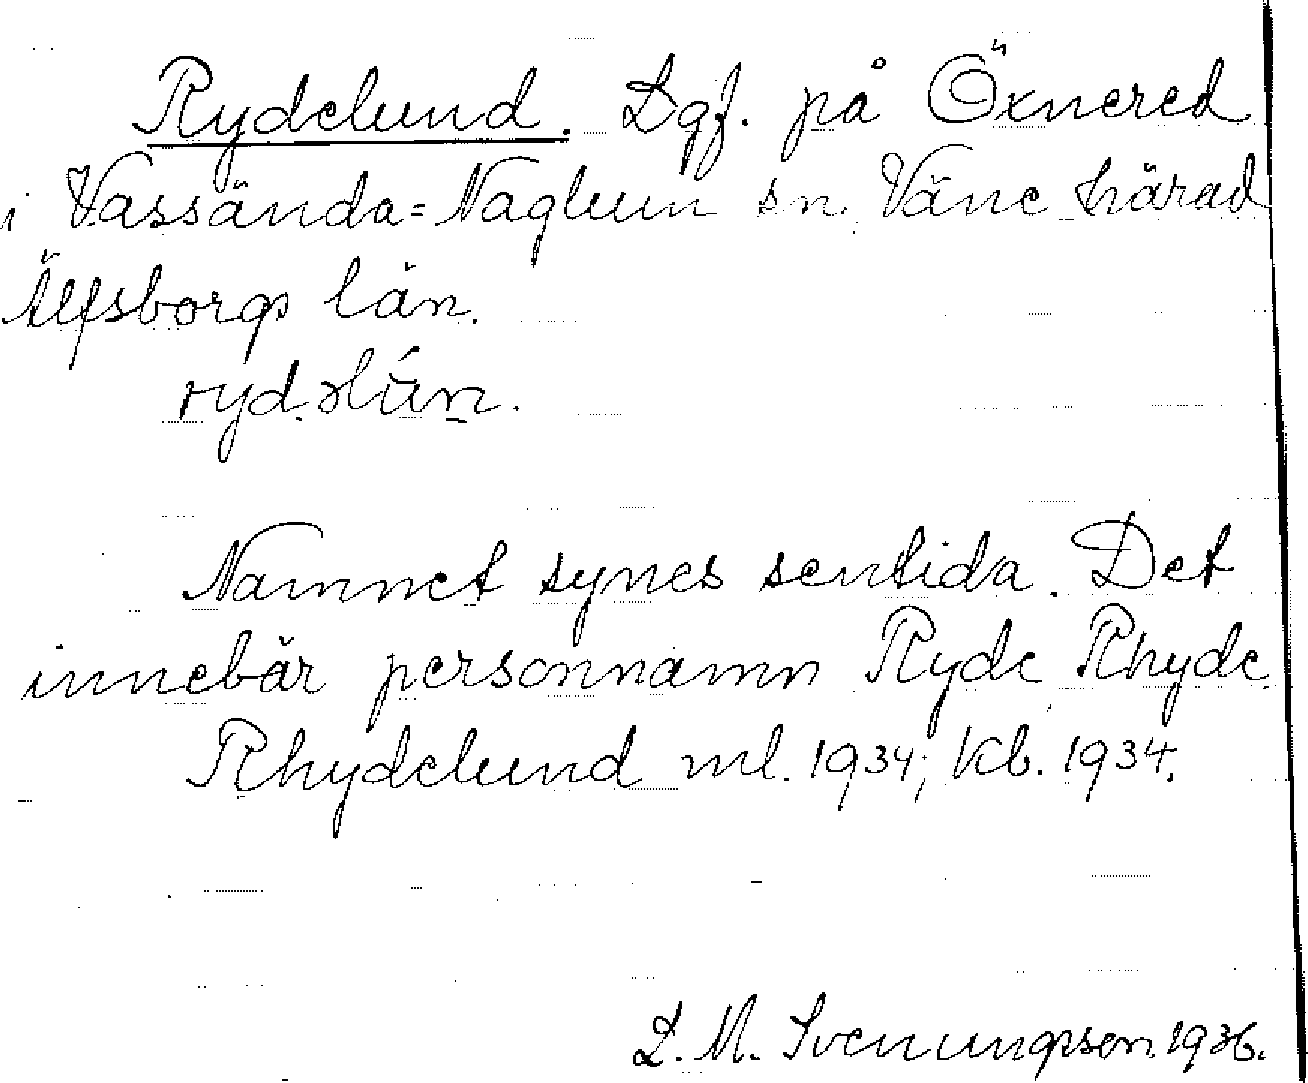 Rydelund. Lgf. på Öxnered
i Vassända=Naglum sn. Väne härad
Älfsborgs län.
ryd.əlún.
Namnet synes sentida. Det
innebär personnamn Ryde Rhyde
Rhydelund ml. 1934; Kb. 1934.
L. M. Svenungsson 1936.